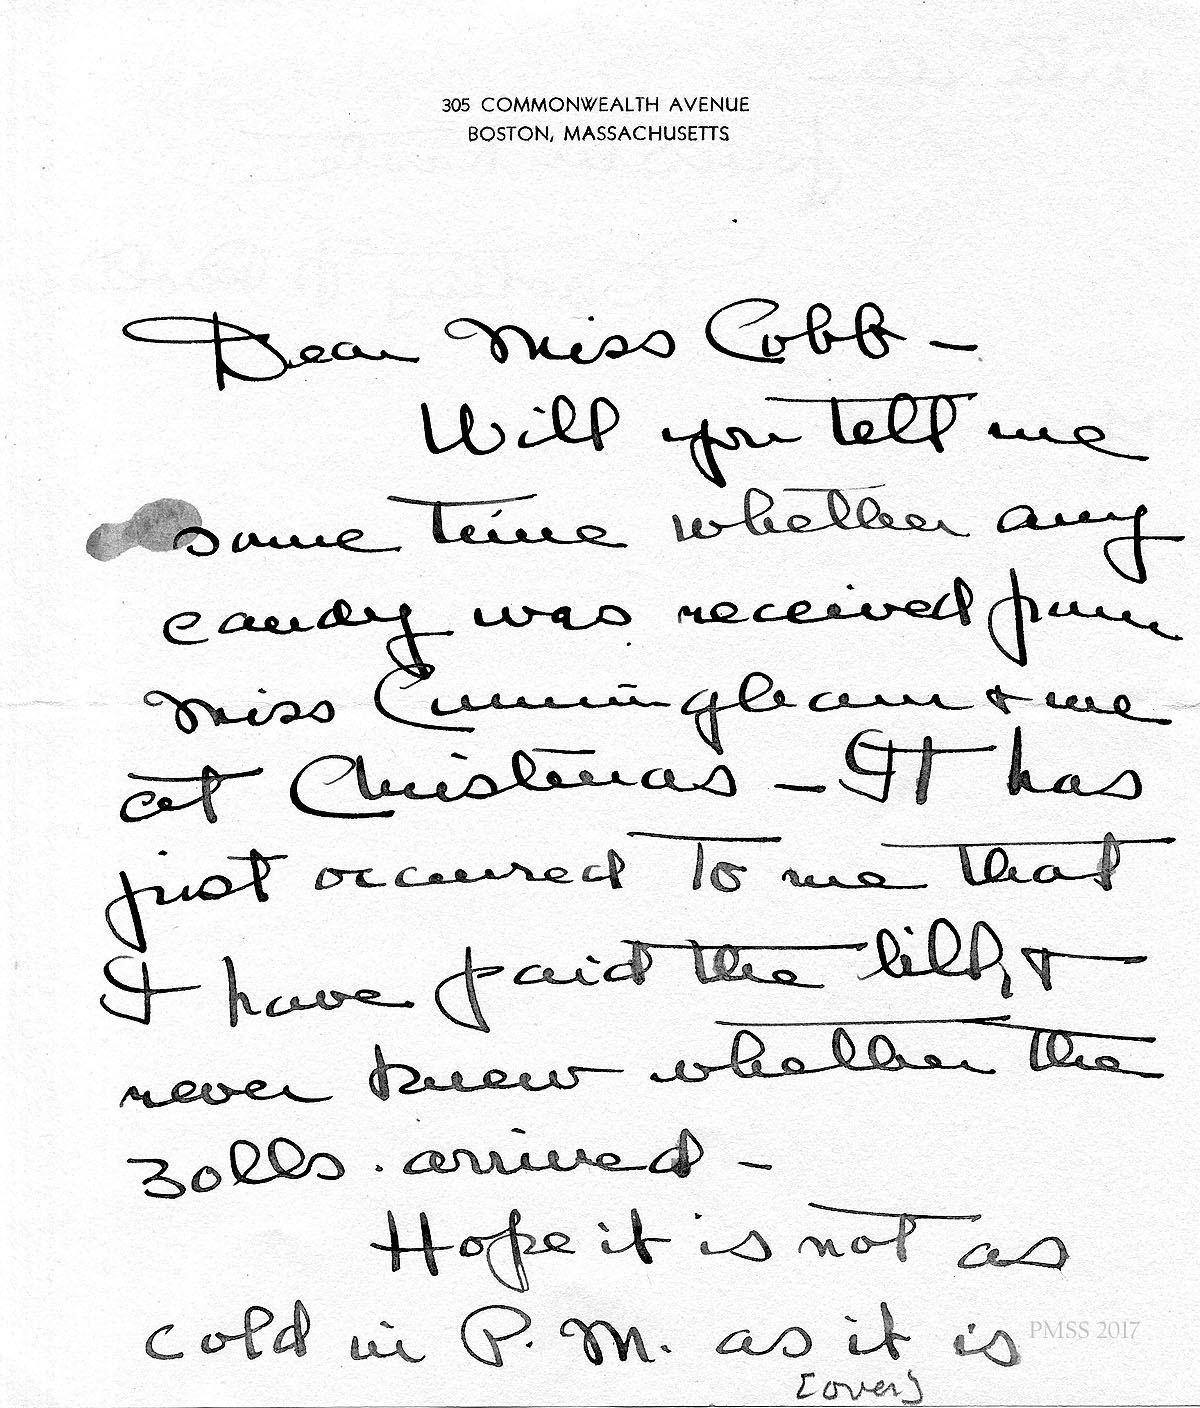 305 COMMONWEALTH AVENUE
BOSTON, MASSACHUSETTS
Dear Miss Cobb –
Will you tell me
some time whether any
candy was received from
Miss Cunningham & me
at Christmas – It has
just occured to me that
I have paid the bill, &
never knew whether the
30 lbs. arrived –
Hope it is not as
cold in P. M. as it is
[over]
PMSS 2017